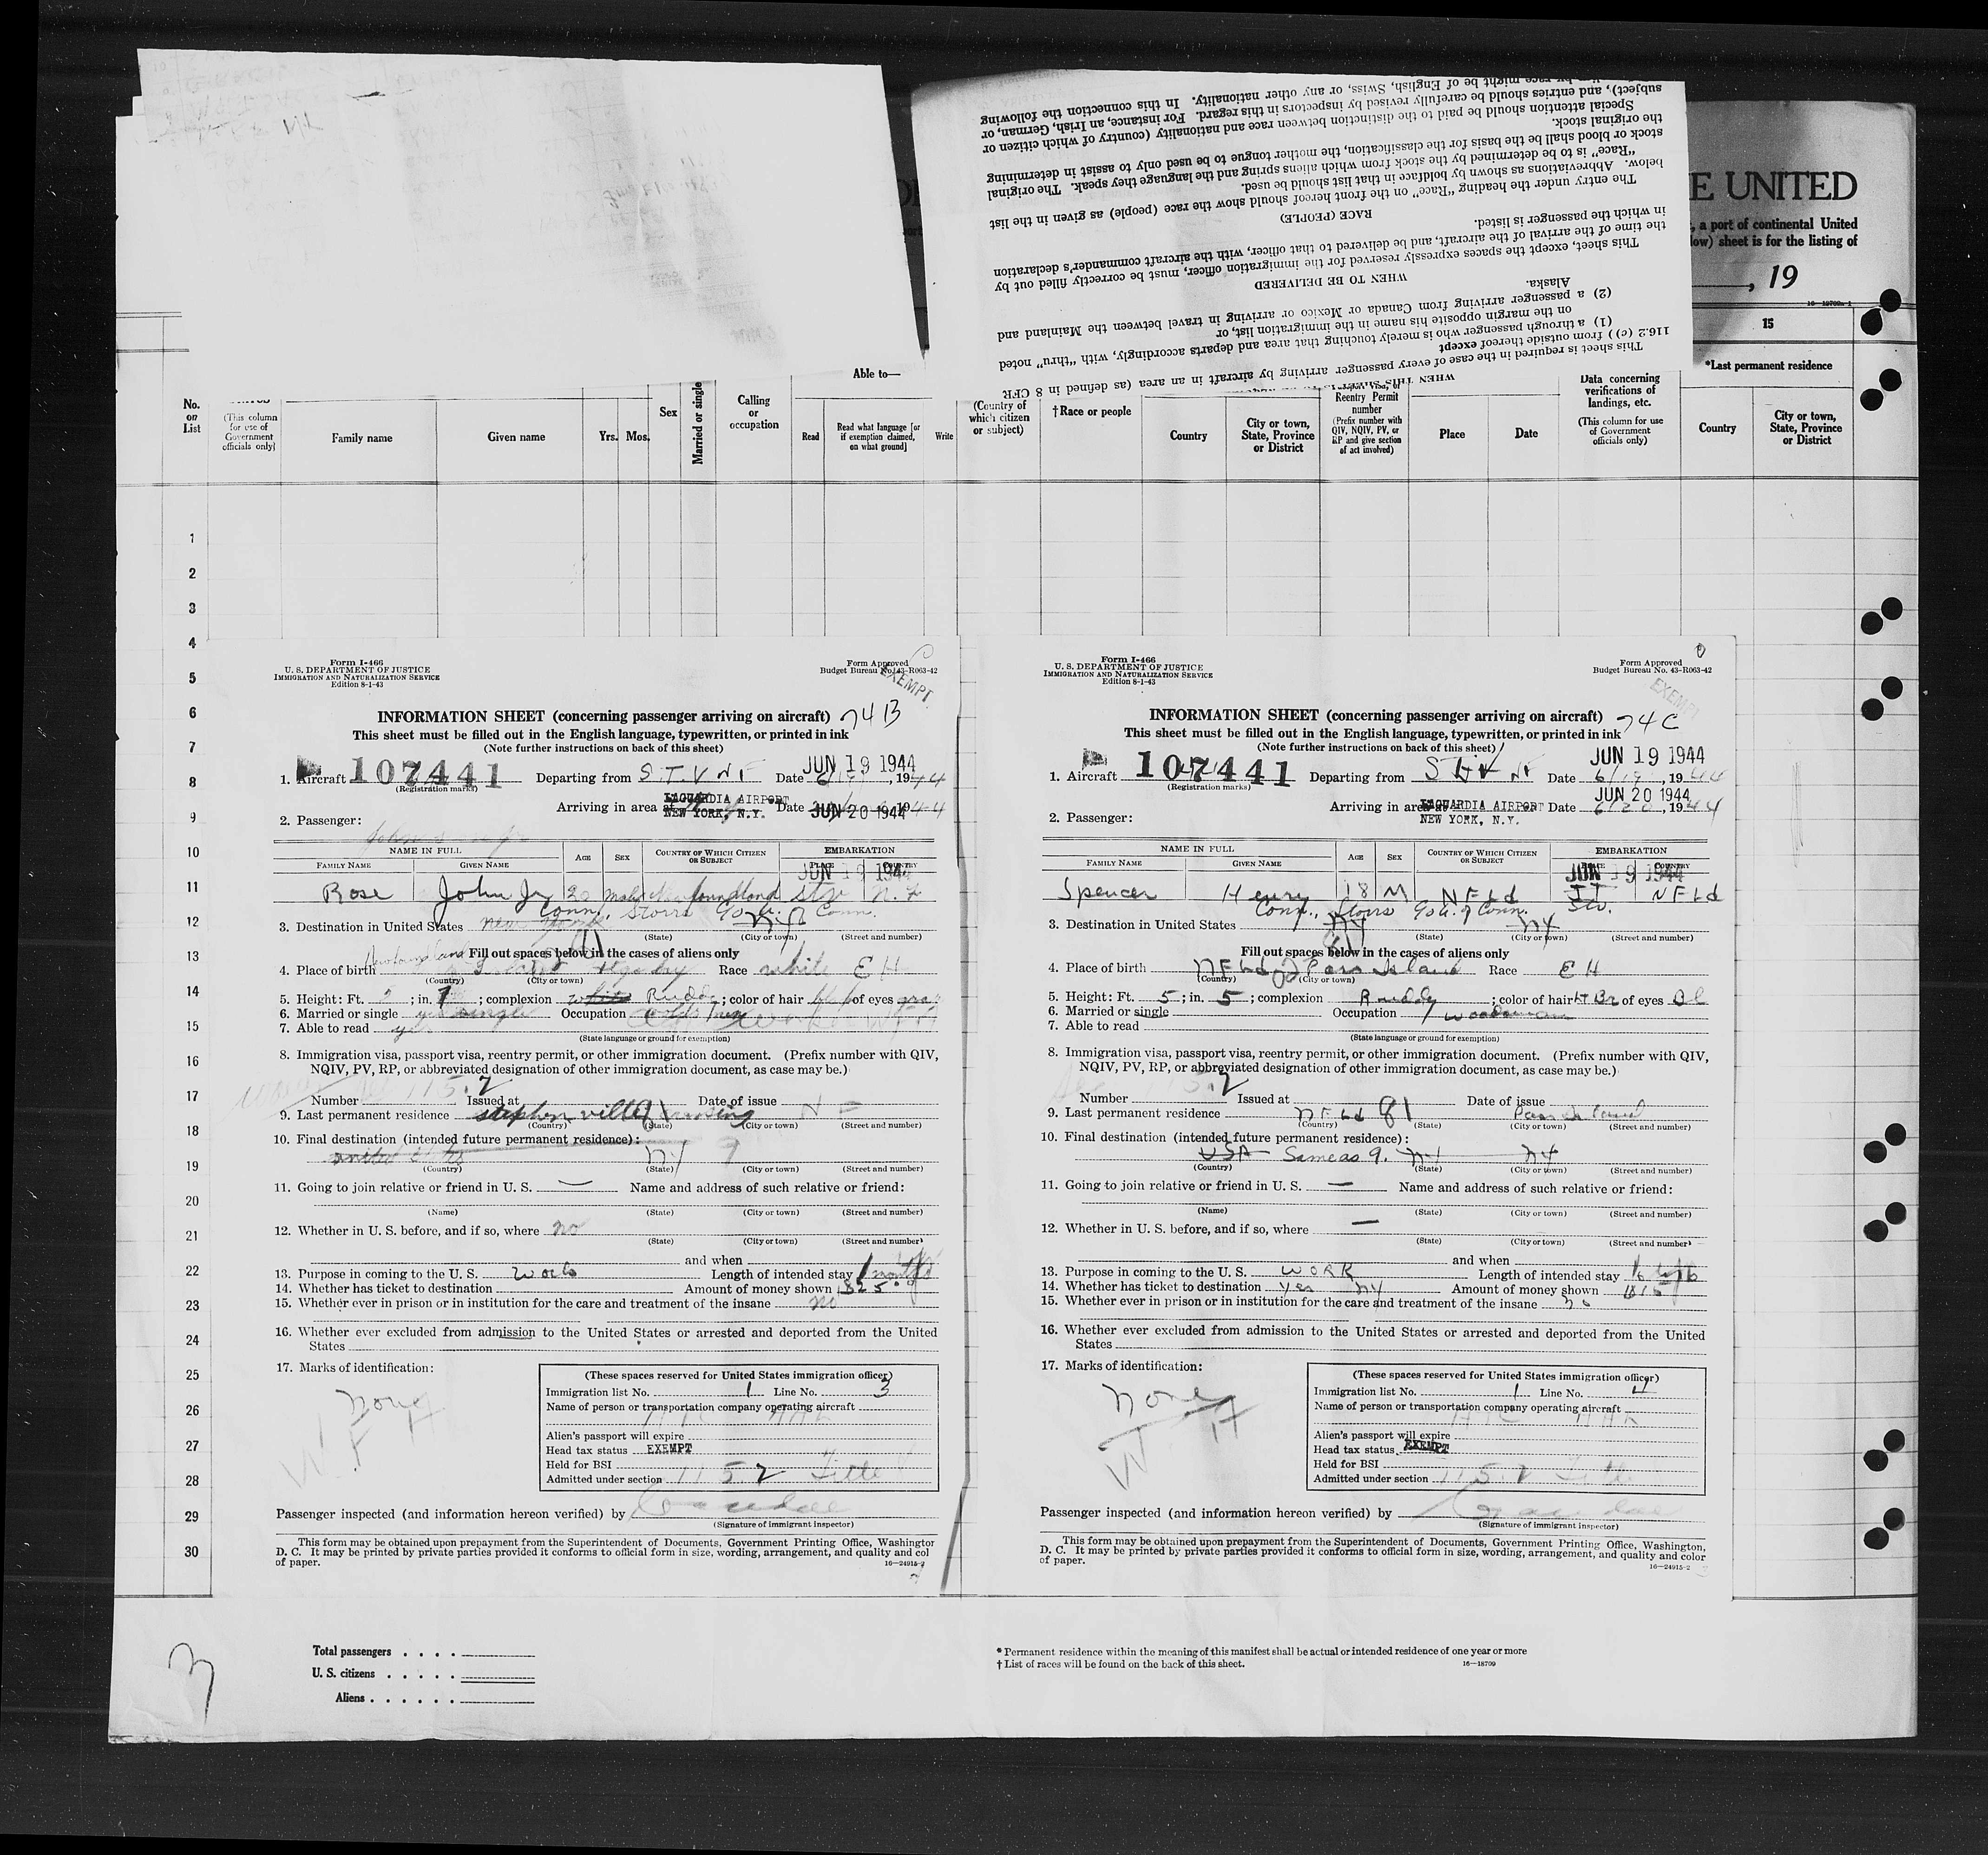 subject), and entries should be carefully revised by inspectors in this regard. For instance, an Irish, German, or
race might be of English, Swiss, or any other nationality. In this connection the following
Special attention should be paid to the distinction between race and nationality (country of which citizen or
the original stock.
stock or blood shall be the basis for the classification, the mother tongue to be used only to assist in determining
"Race" is to be determined by the stock from which aliens spring and the language they speak. The original
below. Abbreviations as shown by boldface in that list should be used.
The entry under the heading "Race" on the front hereof should show the race (people) as given in the list
RACE (PEOPLE)
in which the passenger is listed.
the time of the arrival of the aircraft, and be delivered to that officer, with the aircraft commander's declaration
This sheet, except the spaces expressly reserved for the immigration officer, must be correctly filled out by
WHEN TO BE DELIVERED
Alaska.
(2) a passenger arriving from Canada or Mexico or arriving in travel between the Mainland and
on the margin opposite his name in the immigration list, or
(1) a through passenger who is merely touching that area and departs accordingly, with "thru" noted
116.2 (c) ) from outside thereof except
This sheet is required in the case of every passenger arriving by aircraft in an area (as defined in 8 CFR
E UNITED
, a port of continental United
low) sheet is for the listing of
, 19
15
*Last permanent residence
Able to—
No. on List
(This column for use of Government officials only)
Family name
Given name
Yrs.
Mos.
Sex
Married or single
Calling or occupation
Read
Read what language [or if exemption claimed, on what ground]
Write
(Country of which citizen or subject)
†Race or people
Country
City or town, State, Province or District
Reentry Permit number
(Prefix number with QIV, NQIV, PV, or RP and give section of act involved)
Place
Date
Data concerning verifications of landings, etc.
(This column for use of Government officials only)
Country
City or town, State, Province or District
1
2
3
4
5
6
7
8
9
10
11
12
13
14
15
16
17
18
19
20
21
22
23
24
25
26
27
28
29
30
Form I-466
U. S. DEPARTMENT OF JUSTICE
IMMIGRATION AND NATURALIZATION SERVICE
Edition 8-1-43
Form Approved
Budget Bureau No. 43-R063-42
EXEMPT
INFORMATION SHEET (concerning passenger arriving on aircraft) 74 B
This sheet must be filled out in the English language, typewritten, or printed in ink
(Note further instructions on back of this sheet)
JUN 19 1944
1. Aircraft 107441 Departing from S.T.V NF Date , 1944
(Registration marks)
Arriving in area at LAGUARDIA AIRPORT NEW YORK, N.Y. Date JUN 20 1944 1944
2. Passenger:
NAME IN FULL
AGE
SEX
COUNTRY OF WHICH CITIZEN OR SUBJECT
EMBARKATION
FAMILY NAME
GIVEN NAME
PLACE
COUNTRY
JUN 19 1944
Rose John Jr 20 male Newfoundland STV N.F
Conn. Storrs
3. Destination in United States New York
(State) (City or town) (Street and number)
Fill out spaces below in the cases of aliens only
4. Place of birth Newfoundland Race white EH
(Country) (City or town)
5. Height: Ft. ; in. ; complexion white Ruddy ; color of hair of eyes
6. Married or single single Occupation
7. Able to read yes
(State language or ground for exemption)
8. Immigration visa, passport visa, reentry permit, or other immigration document. (Prefix number with QIV,
NQIV, PV, RP, or abbreviated designation of other immigration document, as case may be.)
115.2
Number Issued at Date of issue
9. Last permanent residence stephenville crossing N F
(Country) (State) (City or town) (Street and number)
10. Final destination (intended future permanent residence):
united states NY 9
(Country) (State) (City or town) (Street and number)
11. Going to join relative or friend in U. S. — Name and address of such relative or friend:
(Name) (State) (City or town) (Street and number)
12. Whether in U. S. before, and if so, where no
(State) (City or town) (Street and number)
and when
13. Purpose in coming to the U. S. Work Length of intended stay months
14. Whether has ticket to destination Amount of money shown $25
15. Whether ever in prison or in institution for the care and treatment of the insane no
16. Whether ever excluded from admission to the United States or arrested and deported from the United
States
17. Marks of identification:
None
W F H
(These spaces reserved for United States immigration officer)
Immigration list No. 1 Line No. 3
Name of person or transportation company operating aircraft
Alien's passport will expire
Head tax status EXEMPT
Held for BSI
Admitted under section 115.2
Passenger inspected (and information hereon verified) by
(Signature of immigrant inspector)
This form may be obtained upon prepayment from the Superintendent of Documents, Government Printing Office, Washington
D. C. It may be printed by private parties provided it conforms to official form in size, wording, arrangement, and quality and col
of paper.
16—24915-2
Form I-466
U. S. DEPARTMENT OF JUSTICE
IMMIGRATION AND NATURALIZATION SERVICE
Edition 8-1-43
Form Approved
Budget Bureau No. 43-R063-42
EXEMPT
INFORMATION SHEET (concerning passenger arriving on aircraft) 74 C
This sheet must be filled out in the English language, typewritten, or printed in ink
(Note further instructions on back of this sheet)
JUN 19 1944
1. Aircraft 107441 Departing from NF Date 6/19 , 1944
(Registration marks)
JUN 20 1944
Arriving in area at LAGUARDIA AIRPORT NEW YORK, N.Y. Date 6/20 , 1944
2. Passenger:
NAME IN FULL
AGE
SEX
COUNTRY OF WHICH CITIZEN OR SUBJECT
EMBARKATION
FAMILY NAME
GIVEN NAME
PLACE
COUNTRY
JUN 19 1944
Spencer Henry 18 M NFLd Stv. NFLd
Conn., Storrs
3. Destination in United States NY NY
(State) (City or town) (Street and number)
Fill out spaces below in the cases of aliens only
4. Place of birth NFLd Pass Island Race EH
(Country) (City or town)
5. Height: Ft. 5 ; in. 5 ; complexion Ruddy ; color of hair Br of eyes Bl
6. Married or single Occupation woodsman
7. Able to read
(State language or ground for exemption)
8. Immigration visa, passport visa, reentry permit, or other immigration document. (Prefix number with QIV,
NQIV, PV, RP, or abbreviated designation of other immigration document, as case may be.)
Number Issued at Date of issue
9. Last permanent residence NFLd 81 Pass Island
(Country) (State) (City or town) (Street and number)
10. Final destination (intended future permanent residence):
USA Same as 9. NY NY
(Country) (State) (City or town) (Street and number)
11. Going to join relative or friend in U. S. — Name and address of such relative or friend:
(Name) (State) (City or town) (Street and number)
12. Whether in U. S. before, and if so, where —
(State) (City or town) (Street and number)
and when
13. Purpose in coming to the U. S. WORK Length of intended stay
14. Whether has ticket to destination Yes NY Amount of money shown
15. Whether ever in prison or in institution for the care and treatment of the insane no
16. Whether ever excluded from admission to the United States or arrested and deported from the United
States
17. Marks of identification:
None
(These spaces reserved for United States immigration officer)
Immigration list No. 1 Line No. 4
Name of person or transportation company operating aircraft
Alien's passport will expire
Head tax status EXEMPT
Held for BSI
Admitted under section 115.2
Passenger inspected (and information hereon verified) by
(Signature of immigrant inspector)
This form may be obtained upon prepayment from the Superintendent of Documents, Government Printing Office, Washington,
D. C. It may be printed by private parties provided it conforms to official form in size, wording, arrangement, and quality and color
of paper.
16—24915-2
Total passengers . . . .
U. S. citizens . . . . .
Aliens . . . . . .
* Permanent residence within the meaning of this manifest shall be actual or intended residence of one year or more
† List of races will be found on the back of this sheet.
16—18709